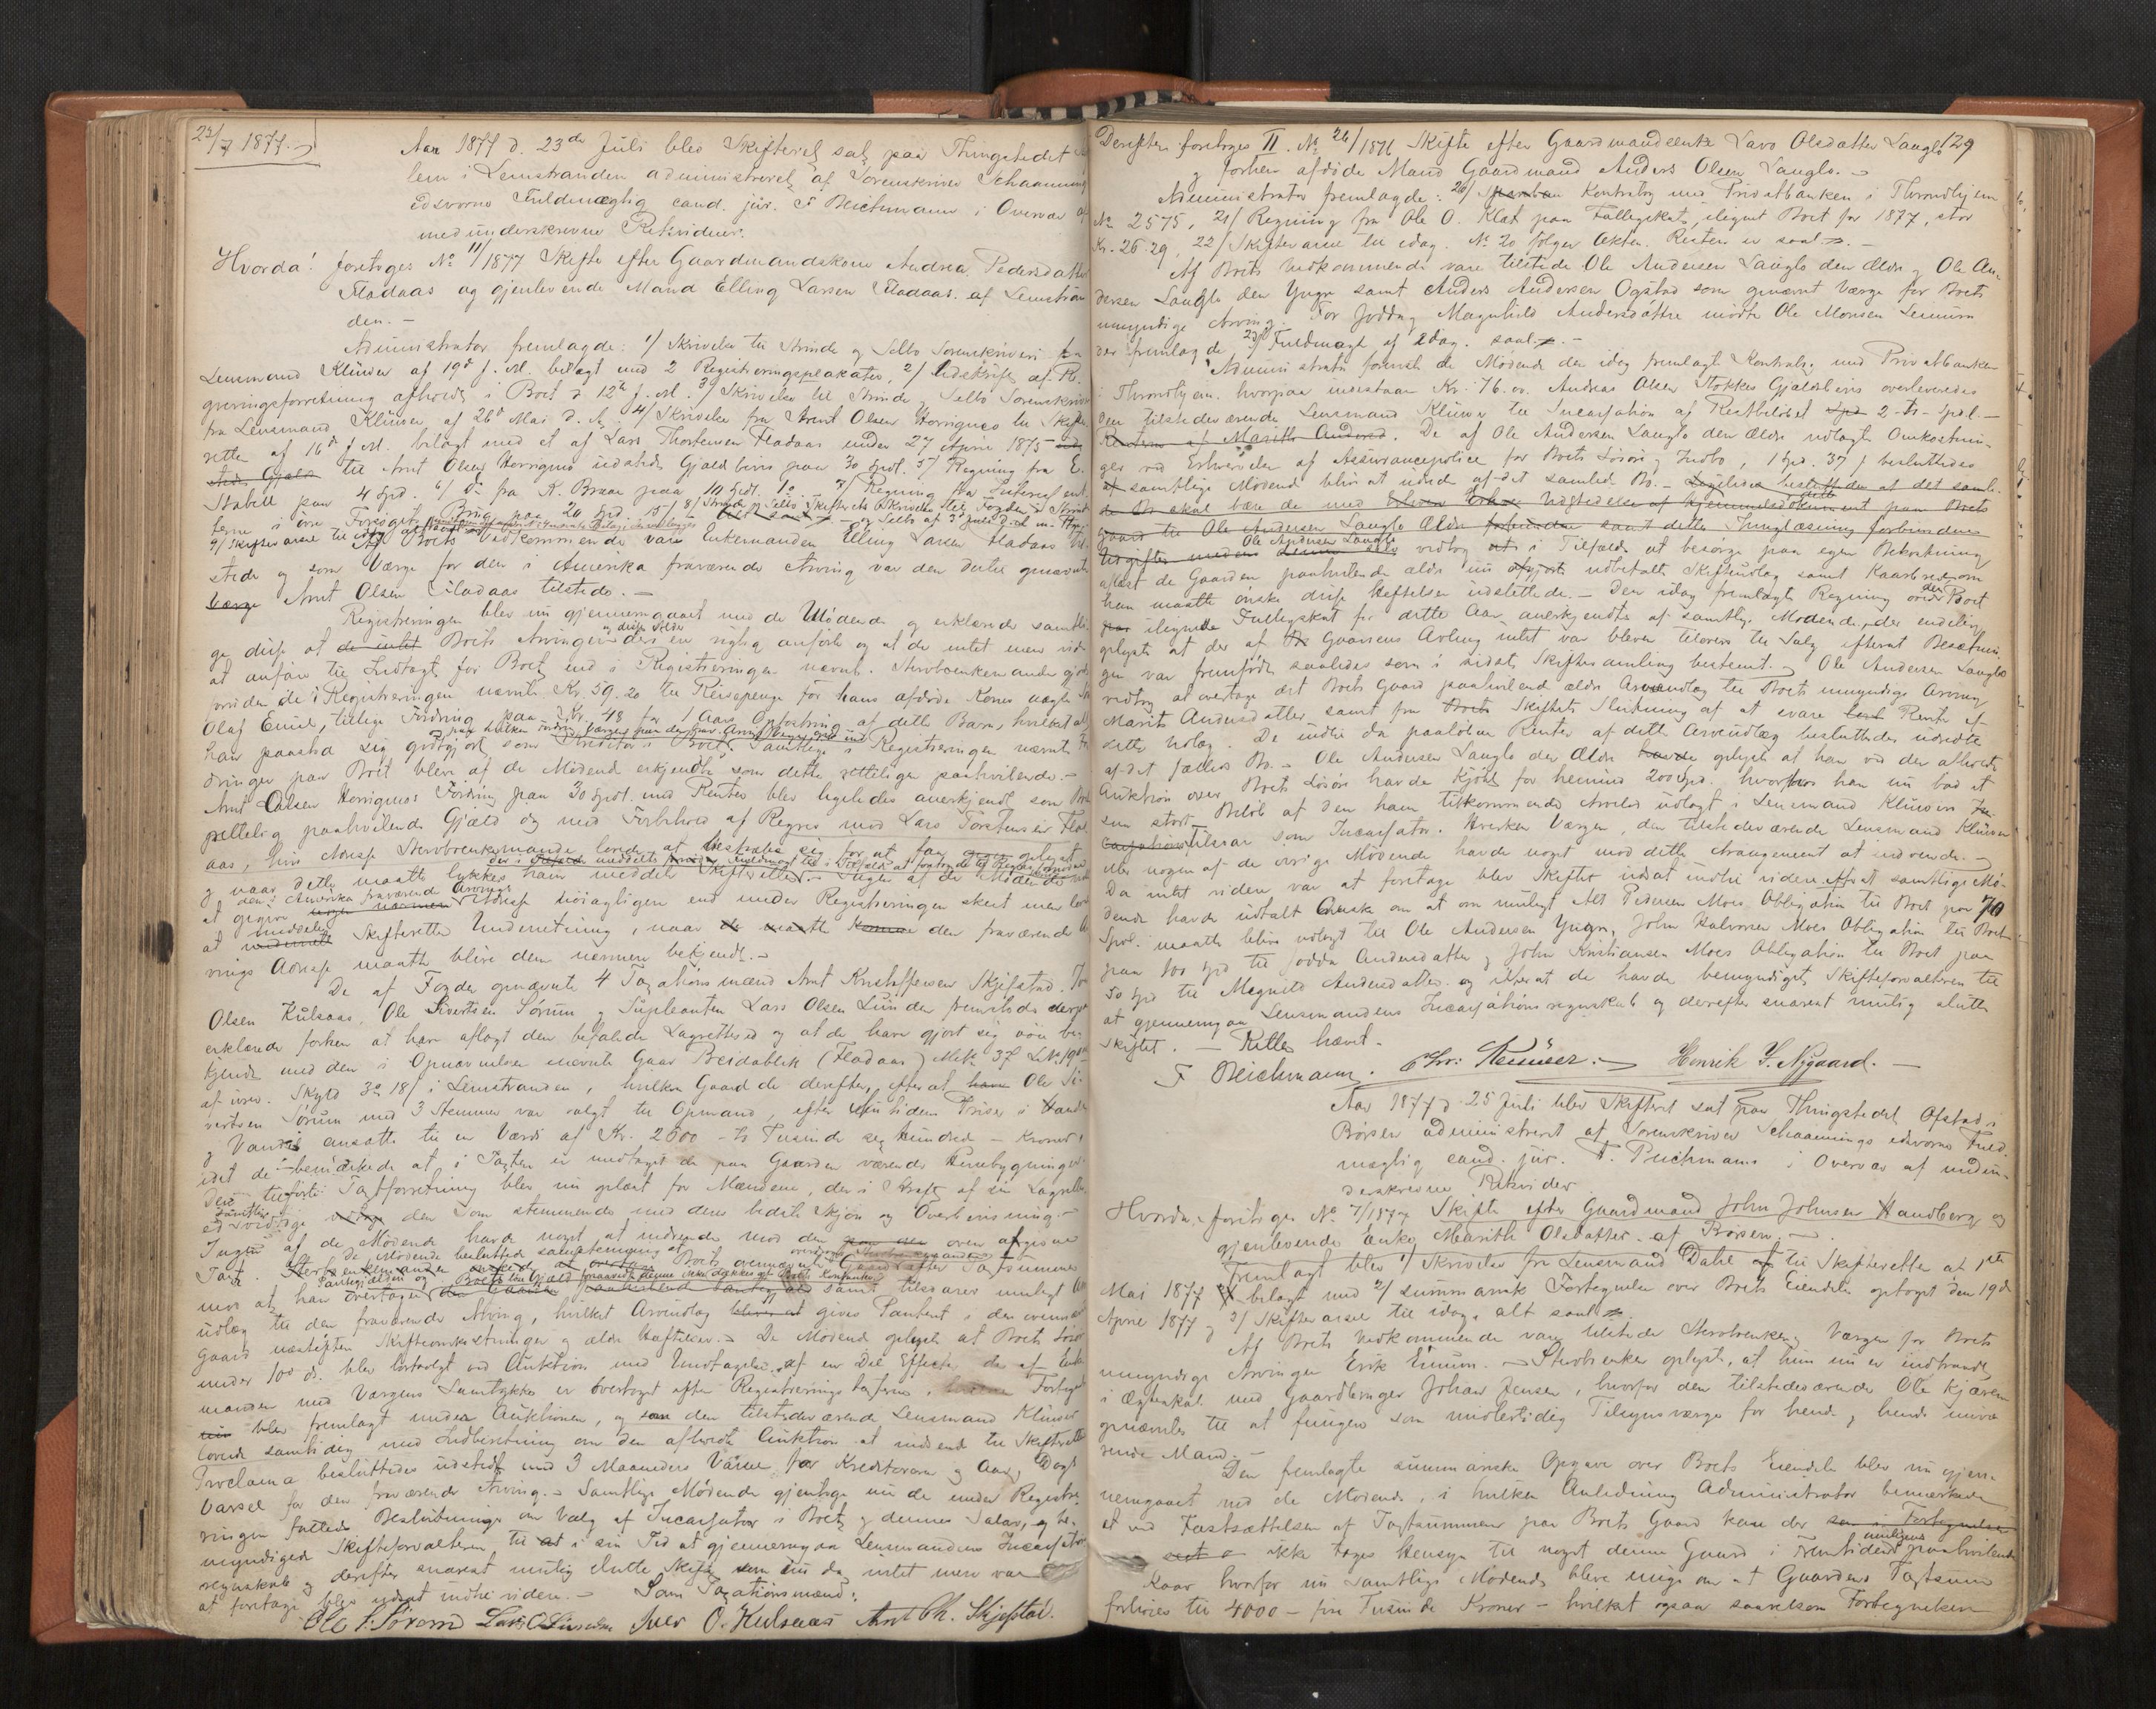 23/7 1877.
Aar 1877 d. 23de Juli blev Skifteret sat paa Thingstedet
lem i Leinstranden administreret af Sorenskriver Schaanning
edsvorne Fuldmægtig cand. jur. F Beichmann i Overvær af
medunderskrevne Retsvidner.
Hvorda! foretoges No 11/1877 Skifte efter Gaardmandskone Andrea Pedersdatter
Fladaas og gjenlevende Mand Elling Larsen Fladaas af Leinstran
den. -
Administrator fremlagde: 1/ Skrivelse til Strinde og Selbo Sorenskriveri fra
Lensmand Klüwer af 19d f. M. belagt med 2 Registreringsplakater, 2/ Udskrift af Re
gistreringsforretning afholdt i Boet d 12te f. M. 3/ Skrivelse til Strinde og Selbo Sorenskriveri
fra Lensmand Klüwer af 26d Mai d. A. 4/ Skrivelse fra Arnt Olsen Horrignes til Skifte
retten af 16d f M. belagt med et af Lars Thorstensen Fladaas under 27 April 1875
til Arnt Olsen Horrignes udstedt Gjeldsbevis paa 30 Spd. 5/ Regning fra E.
Stabell paa 4 Spd. 6/ Do fra K. Braae paa
9/ Skiftevarsel til idag
Af Boets Vedkommende var Enkemanden Elling Larsen Fladaas til
stede og som Værge for den i Amerika fraværende Arving var den dertil opnævnte
Værge Arnt Olsen Fladaas tilstede. -
Registreringen blev nu gjennemgaaet med de Mødende og erklærede samtli
ge disse at Boets Arvinger og disses Alder deri er rigtig anført og at de intet mere vid
at anføre til Indtægt for Boet, end i Registreringen nævnt. Stervboenkemanden gjorde
foruden de i Registreringen nævnte Kr. 59.20 til Reisepenge for hans afdøde Kones uægte Søn
Olaf Emil, tillige Fordring paa Kr. 48 for 1 Aars Opfostring af dette Barn, hvilket alt
han paastod sig godtgjort som Kreditor i Boet. Samtlige i Registreringen nævnte For
dringer paa Boet bleve af de Mødende erkjendte som dette rettelig paahvilende. -
Arnt Olsen Horrignes Fordring paa 30 Spd. med Renter blev ligeledes anerkjendt som Boet
rettelig paahvilende Gjeld og med Forbehold af Regres mod Lars Torstensen Flad
aas, hvis Adresse Stervboenkemanden lovede at bestræbe sig for at faa oplyst
og naar dette maatte lykkes ham meddele Skifteretten. - Ingen af de Mødende
at opgive den i Amerika fraværende Arvings Adresse nøiagtigere end under Registreringen skeet men lov
at meddele Skifteretten Underretning, naar den fraværende Ar
vings Adresse maatte blive dem nærmere bekjendt. -
De af Fogden opnævnte 4 Taxationsmænd Arnt Kristoffersen Skjefstad, Iv
Olsen Kulsaas, Ole Sivertsen Sørum og Supleanten Lars Olsen Linder fremstode derpaa
erklærede forhen at have aflagt den befalede Lagrettesed og at de have gjort sig nøie be
kjendt med den i Opnævnelsen nævnte Gaar Breidablik (Fladaas) Mtr. 37 L No
af urev. Skyld 3 18 i Leinstranden, hvilken Gaard de derefter, efterat Ole Si
vertsen Sørum med 3 Stemmer var valgt til Opmand, efter Nutidens Priser i Handel
og Vandel ansatte til en Værdi af Kr. 2600 - to Tusinde sex hundrede - Kroner,
idet de bemærkede at i Taxten er medtaget de paa Gaarden værende Husebygninger.
Den tilførte Taxtforretning blev nu oplæst for Mændene, der i Kraft af sin Lagrettes
ed vedtoge den som stemmende med deres bedste Skjøn og Overbevisning. -
Ingen af de Mødende havde noget at indvende mod den ovenafgivne
Taxt.
mod at han overtager samt tilsvarer muligt Arve
udlæg til den fraværende Arving, hvilket Arveudlæg gives Panteret i den ovennævnte
Gaard næstefter Skifteomkostninger og ældre Hæftelser. - De Mødende oplyste at Boets Løsøre
under 100 d. blev bortsolgt ved Auktion med Undtagelse af en Del Effecter der af Enke
manden med Værgens Samtykke er overtaget efter Registreringstaxterne, Forteg
blev fremlagt under Auktionen, og den tilstedeværende Lensmand Klüwer
lovede samtidig med Indberetning om den afholdte Auktion at indsende til Skifteretten
Proclama besluttedes udstedt med 3 Maaneders Varsel for Kreditorerne og Aar og Dags
Varsel for den fraværende Arving. - Samtlige Mødende gjentoge nu de under Registre
ringen fattede Beslutninger om Valg af Incassator i Boet og dennes Salær, og be
myndigede Skifteforvalteren til at i sin Tid at gjennemgaa Lensmandens Incassations
regnskab og derefter snarest mulig slutte Skiftet, som nu da intet mere var
at foretage blev udsat indtil videre. - Som Taxationsmænd:
Ole S. Sørum Lars O Linder Iver O. Kulsaas Arnt Ch. Skjefstad.
129
Derefter foretoges II. No 26/1876 Skifte efter Gaardmandsenke Lavo Olsdatter Langlo
og forhen afdøde Mand Gaardmand Anders Olsen Langlo. -
Administrator fremlagde: 20/ Kontrabog med Privatbanken i Throndhjem
No 2575, 21/ Regning fra Ole O. Klæt paa Fattigskat, ilignet Boet for 1877, stor
Kr. 26.29, 22/ Skiftevarsel til idag. No 20 følger Akten. Resten er saal. -
Af Boets Vedkommende vare tilstede Ole Andersen Langlo den Ældre og Ole An
dersen Langlo den Yngre samt Anders Andersen Ogstad som opnævnt Værge for Boets
umyndige Arving. For Jødda og Magnhild Andersdøttre mødte Ole Monsen Leinum
der fremlagde 23/ Fuldmagt af idag. saal. -
Administrator foreviste de Mødende den idag fremlagte Kontrabog med Privatbanken
i Throndhjem, hvorpaa indestaar Kr. 76.00. Andreas Olsen Stokkes Gjeldsbevis overleveredes
den tilstedeværende Lensmand Klüwer til Incassation af Restbeløbet 2 - to - Spd. -
De af Ole Andersen Langlo den Ældre udlagte Omkostnin
ger ved Erhvervelse af Assurancepolice for Boets Løsøre og Indbo, 1 Spd. 37 s besluttedes
af samtlige Mødende blive at udrede af det samlede Bo.
Ole Andersen Langlo vedtog i Tilfælde at besørge paa egen Bekostning
aflæst de Gaarden paahvilende ældre nu udbetalte Skifteudlæg samt Kaarbrev om
han maatte ønske disse Heftelser udslettede. - Den idag fremlagte Regning over den Boet
ilignede Fattigskat for dette Aar anerkjendtes af samtlige Mødende, der endelig
oplyste at der af Gaardens Avling intet var blevet tilovers til Salg efterat Besætnin
gen var fremfødt saaledes som i sidste Skiftesamling bestemt. - Ole Andersen Langlo
vedtog at overtage det Boets Gaard paahvilende ældre Arveudlæg til Boets umyndige Arving
Marit Andersdatter samt fra Skiftets Slutning af at svare Rente af
dette Udlæg. De indtil da paaløbne Renter af dette Arveudlæg besluttedes udredte
af det fælles Bo. - Ole Andersen Langlo den Ældre oplyste at han ved den afholdte
Auktion over Boets Løsøre havde kjøbt for henimod 200 Spd. hvorfor han nu bad et
saa stort Beløb af den ham tilkommende Arvelod udlagt i Lensmand Klüwers
Tilsvar som Incassator. Hverken Værgen, den tilstedeværende Lensmand Klüwer
eller nogen af de øvrige Mødende havde noget mod dette Arrangement at indvende. -
Da intet videre var at foretage blev Skiftet udsat indtil videre efterat samtlige Mø
dende havde udtalt Ønske om at om muligt Alt Pedersen Moes Obligation til Boet paa 70
Spd. maatte blive udlagt til Ole Andersen Yngre, John Halvorsen Moes Obligation til Boet
paa 100 Spd til Jødda Andersdatter og John Kristiansen Moes Obligation til Boet paa
50 Spd til Magnild Andersdatter. og efterat de havde bemyndiget Skifteforvalteren til
at gjennemgaa Lensmandens Incassationsregnskab og derefter snarest mulig slutte
Skiftet. - Retten hævet. -
F Beichmann. Chr: Klüwer. Henrik J. Nygaard. -
Aar 1877 d. 25 Juli blev Skifteret sat paa Thingstedet Ofstad i
Børsen administreret af Sorenskriver Schaannings edsvorne Fuld
mægtig cand. jur. F. Beichmann i Overvær af medun-
derskrevne Retsvidner
Hvorda, foretoges No 7/1877 Skifte efter Gaardmand John Johnsen Handberg og
gjenlevende Enke Marith Olsdatter af Børsen. -
Fremlagt blev 1/ Skrivelse fra Lensmand Dahl til Skifteretten af 1ste
Mai 1877 belagt med 2/ summarisk Fortegnelse over Boets Eiendele optaget den 19d
April 1877 og 3/ Skiftevarsel til idag. alt saal.
Af Boets Vedkommende vare tilstede Stervboenken og Værgen for Boets
umyndige Arvinger Erik Einum. - Stervboenken oplyste, at hun nu er indtraadt
i Ægteskab med Gaardbruger Johan Jensen, hvorfor den tilstedeværende Ole Kjæren
opnævntes til at fungere som midlertidig Tilsynsværge for hende og hendes nuvæ
rende Mand. -
Den fremlagte summariske Opgave over Boets Eiendele blev nu gjen-
nemgaaet med de Mødende, i hvilken Anledning Administrator bemærkede
at ved Fastsættelsen af Taxtsummen paa Boets Gaard kan der
ikke tages Hensyn til noget denne Gaard i Fremtiden muligens paahvilende
Kaar hvorfor nu samtlige Mødende bleve enige om at Gaardens Taxtsum
forhøies til 4000 - fire Tusinde Kroner - hvilket ogsaa saavelsom Fortegnelsen